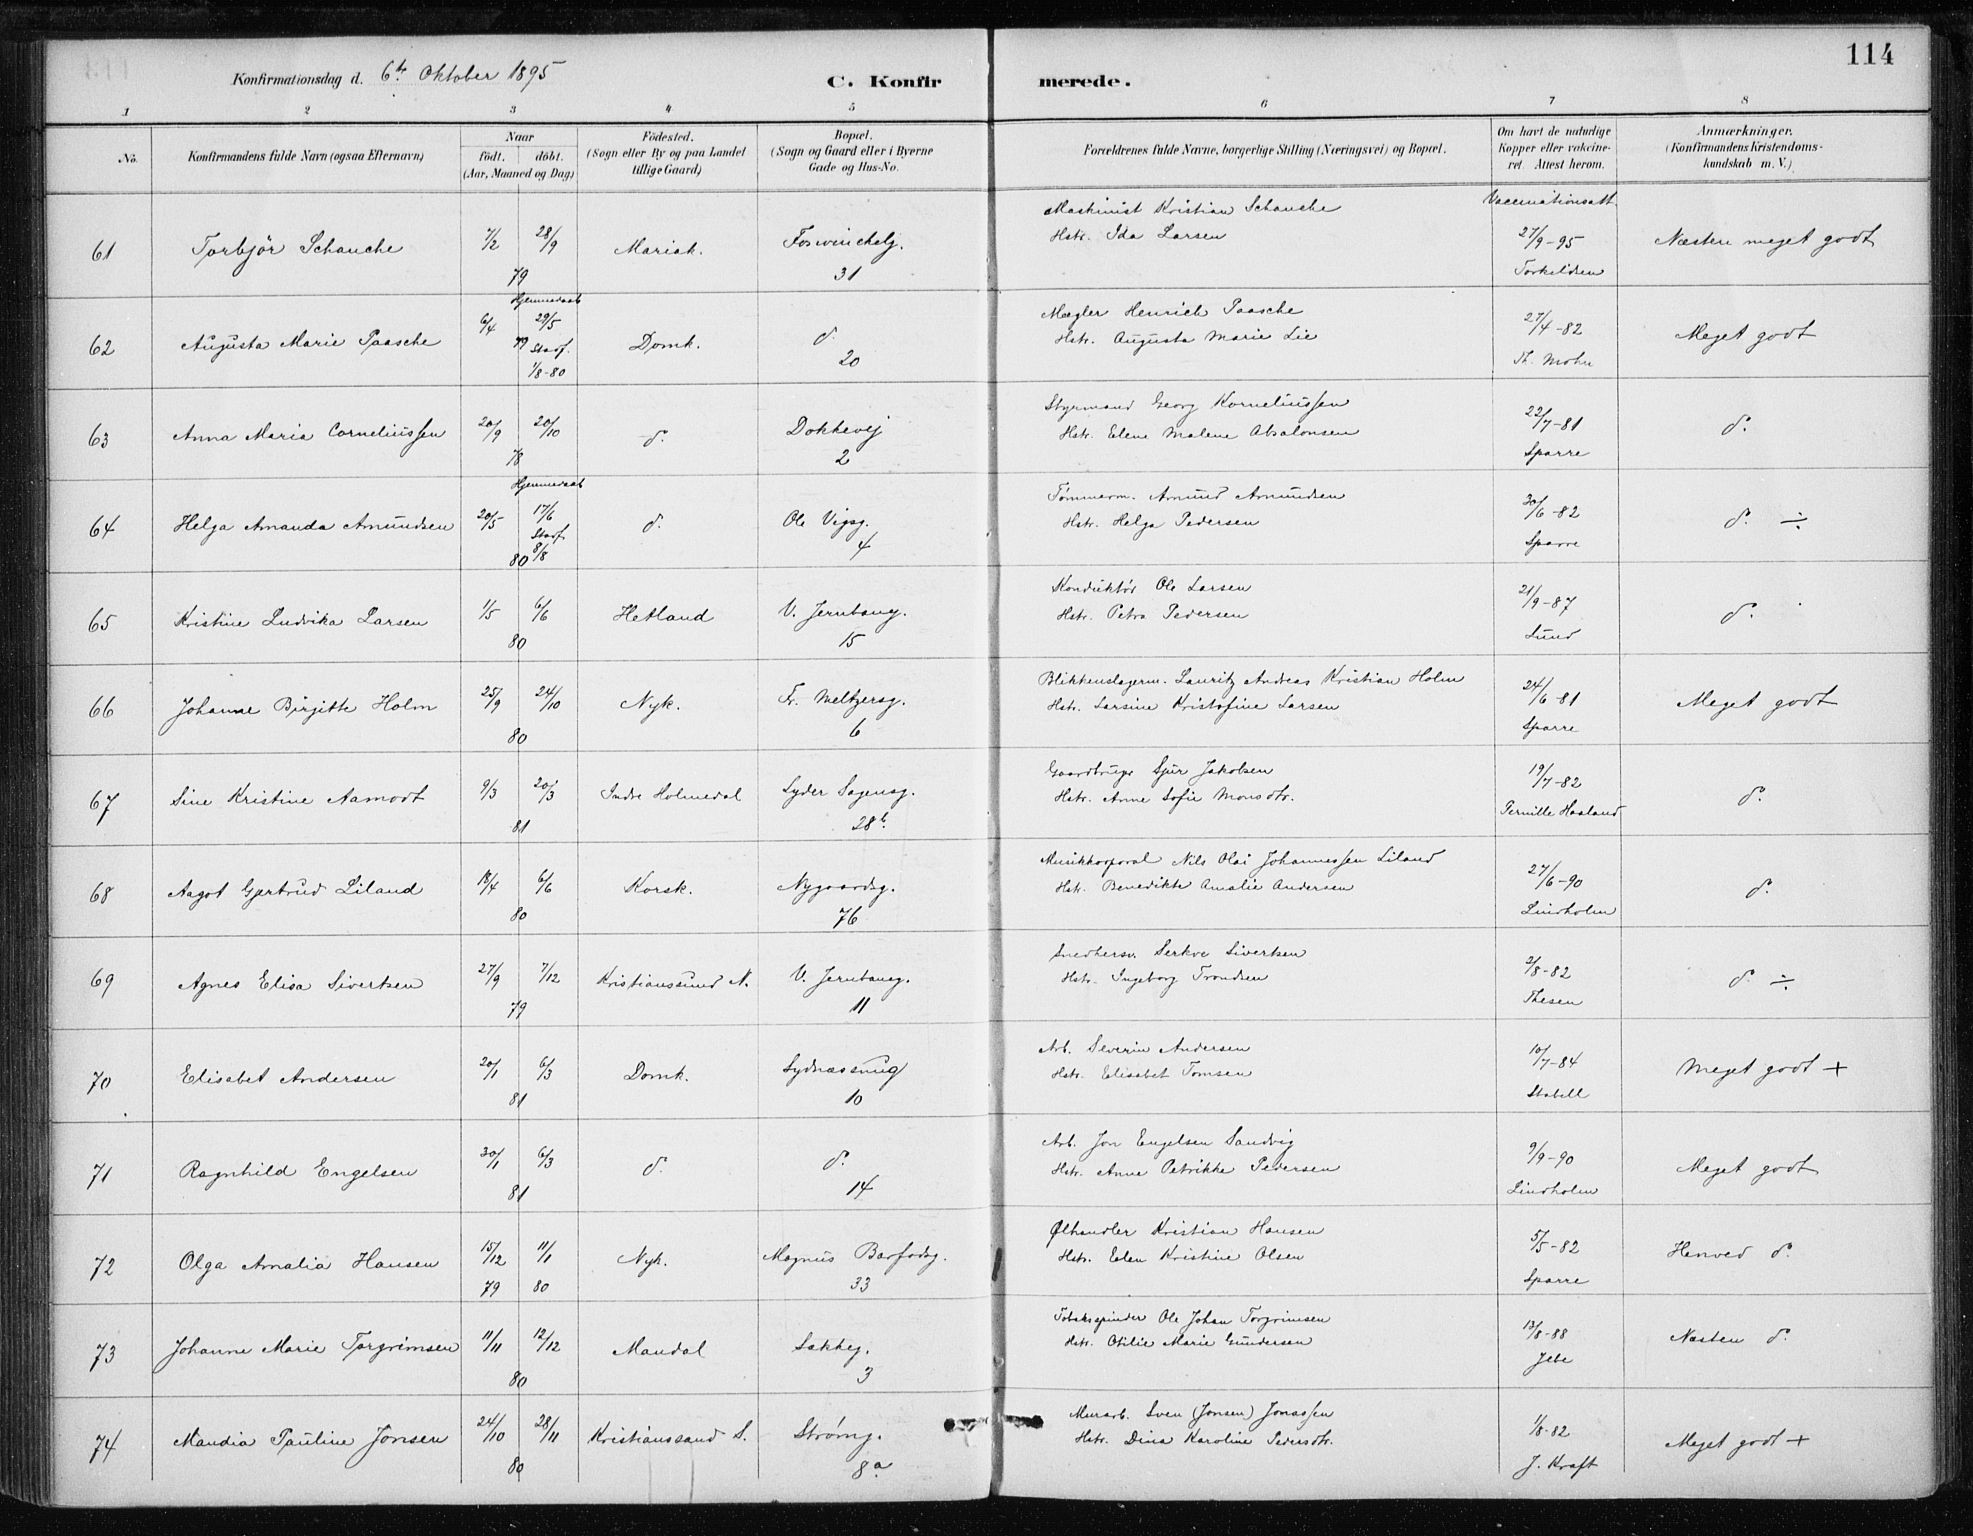 114
Konfirmationsdag d. 6te Oktober 1895
C. Konfirmerede.
1 2 3 4 5 6 7 8
No. Konfirmandens fulde Navn (ogsaa Efternavn) Naar födt. döbt. (Aar, Maaned og Dag) Födested. (Sogn eller By og paa Landet tillige Gaard) Bopæl. (Sogn og Gaard eller i Byerne Gade og Hus-No. Forældrenes fulde Navne, borgerlige Stilling (Næringsvei) og Bopæl. Om havt de naturlige Kopper eller vakcineret. Attest herom. Anmærkninger. (Konfirmandens Kristendomskundskab m. V.)
61 Torbjör Schanche 7/2 28/9 79 Mariak. Foswinckelg. 31 Maskinist Kristian Schanche Hstr. Ida Larsen Vaccinationsatt. 27/9-95 Torkildsen Næsten meget godt
62 Augusta Marie Paasche 6/4 79 Hjemmedaab 29/5 Stadf. 1/8-80 Domk. d. 20 Mægler Henrich Paasche Hstr. Augusta Marie Lie 27/4-82 Th. Mohn Meget godt
63 Anna Maria Corneliussen 20/9 20/10 78 d. Dokkevej 2 Styrmand Georg Korneliussen Hstr. Elene Malene Absalonsen 22/7-81 Sparre d.
64 Helga Amanda Amundsen 20/5 Hjemmedaab 17/6 Stadf. 8/8 80 d. Ole Vigsg. 4 Tømmerm. Amund Amundsen Hstr. Helga Pedersen 30/6-82 Sparre d. ÷
65 Kristine Ludvika Larsen 1/5 6/6 80 Hetland V. Jernbaneg. 15 Konduktör Ole Larsen Hstr. Petra Pedersen 21/9-87 Lund d.
66 Johanne Birgitte Holm 25/9 24/10 80 Nyk. Fr. Meltzersg. 6 Blikkenslagerm. Lauritz Andreas Kristian Holm Hstr. Larsine Kristofine Larsen 24/6-81 Sparre Meget godt
67 Sine Kristine Aamodt 9/3 20/3 81 Indre Holmedal Lyder Sagensg. 28b. Gaardbruger Sjur Jakobsen Hstr. Anne Sofie Monsdtr. 19/7-82 Pernille Haaland d.
68 Aagot Gjertrud Liland 18/4 6/6 80 Korsk. Nygaardsg. 76 Musikkorporal Nils Olai Johannessen Liland Hstr. Benedikte Amalie Andersen 27/6-90 Lindholm d.
69 Agnes Elisa Sivertsen 27/9 7/12 79 Kristianssund N. V. Jernbaneg. 11 Snedkersv. Serkve Sivertsen Hstr. Ingeborg Trondsen 2/8-82 Thesen d. ÷
70 Elisabet Andersen 20/1 6/3 81 Domk. Sydnæssmug 10 Arb. Severin Andersen Hstr. Elisabet Tomsen 10/7-84 Stabell Meget godt +
71 Ragnhild Engelsen 30/1 6/3 81 d. d. 14 Arb. Jon Engelsen Sandvig Hstr. Anne Petrikke Pedersen 9/9-90 Lindholm Meget godt
72 Olga Amalia Hansen 15/12 79 11/1 80 Nyk. Magnus Barfodsg. 33 Ølhandler Kristian Hansen Hstr. Elen Kristine Olsen 5/5-82 Sparre Henved d.
73 Johanne Marie Torgrimsen 11/11 12/12 80 Mandal Lakkeg. 3 Tobakspinder Ole Johan Torgrimsen Hstr. Otilie Marie Gundersen 13/8-88 Jebe Næsten d.
74 Mandia Pauline Jonsen 24/10 28/11 80 Kristianssand S. Strømg. 8a Murarb. Sven (Jonsen) Jonassen Hstr. Dina Karoline Pedersdtr. 1/8-82 J. Kraft Meget godt +